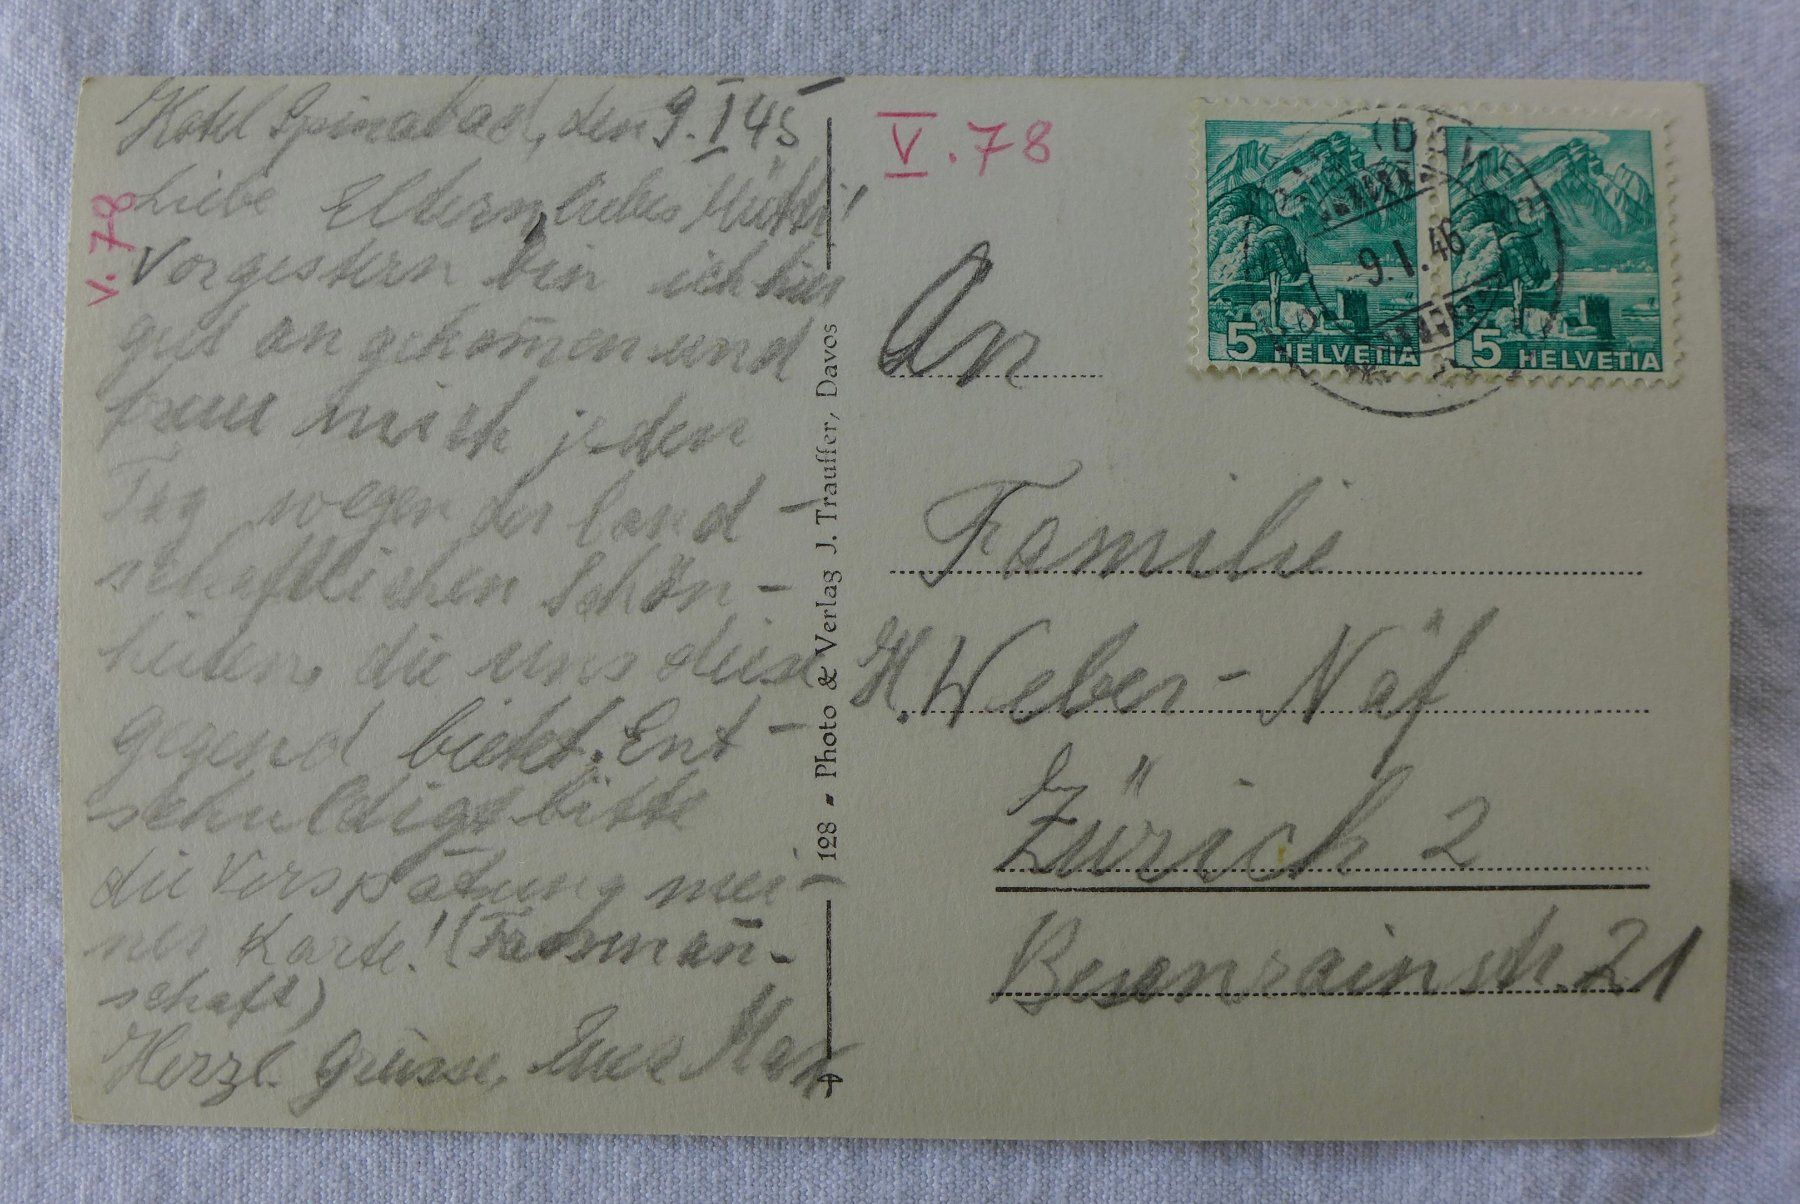 Hotel Spinabad, den 9. I 45
Liebe Eltern, liebes Mütti!
Vorgestern bin ich hier
gut an gekom̄en und
freue mich jeden
Tag wegen der land-
schaftlichen Schön-
heiten, die uns diese
gegend bietet. Ent-
schuldigt bitte
die Verspätung mei-
ner Karte!
schaft)
Herzl. Grüsse, Euer Max
V. 78
128 - Photo & Verlag J. Trauffer, Davos
V. 78
5 HELVETIA
5 HELVETIA
-9. I. 46
An
Familie
H. Weber-Näf
Zürich 2
Besenrainstr. 21